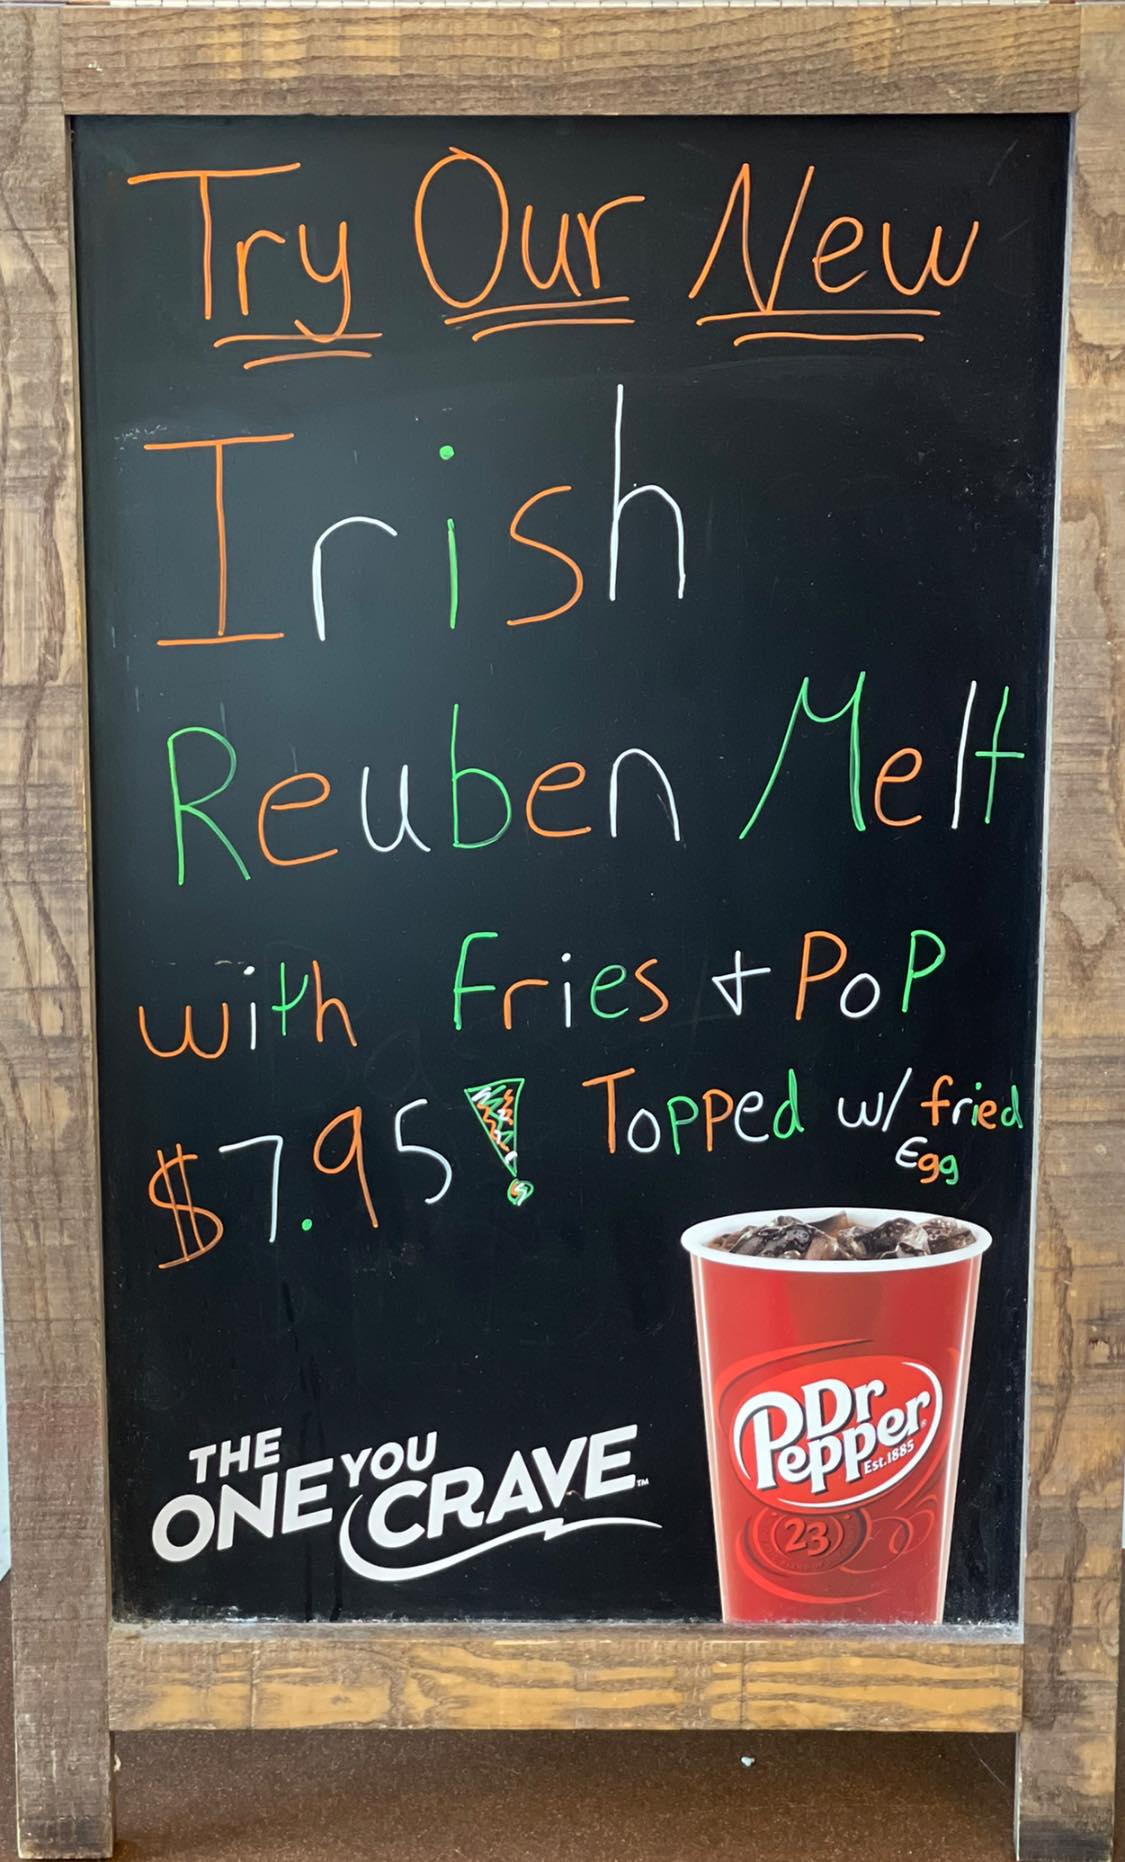 Try Our New
Irish
Reuben Melt
with Fries + PoP
$7.95! Topped w/ fried
Egg
THE
ONE YOU
CRAVE™
Dr
Pepper®
Est.1885
23